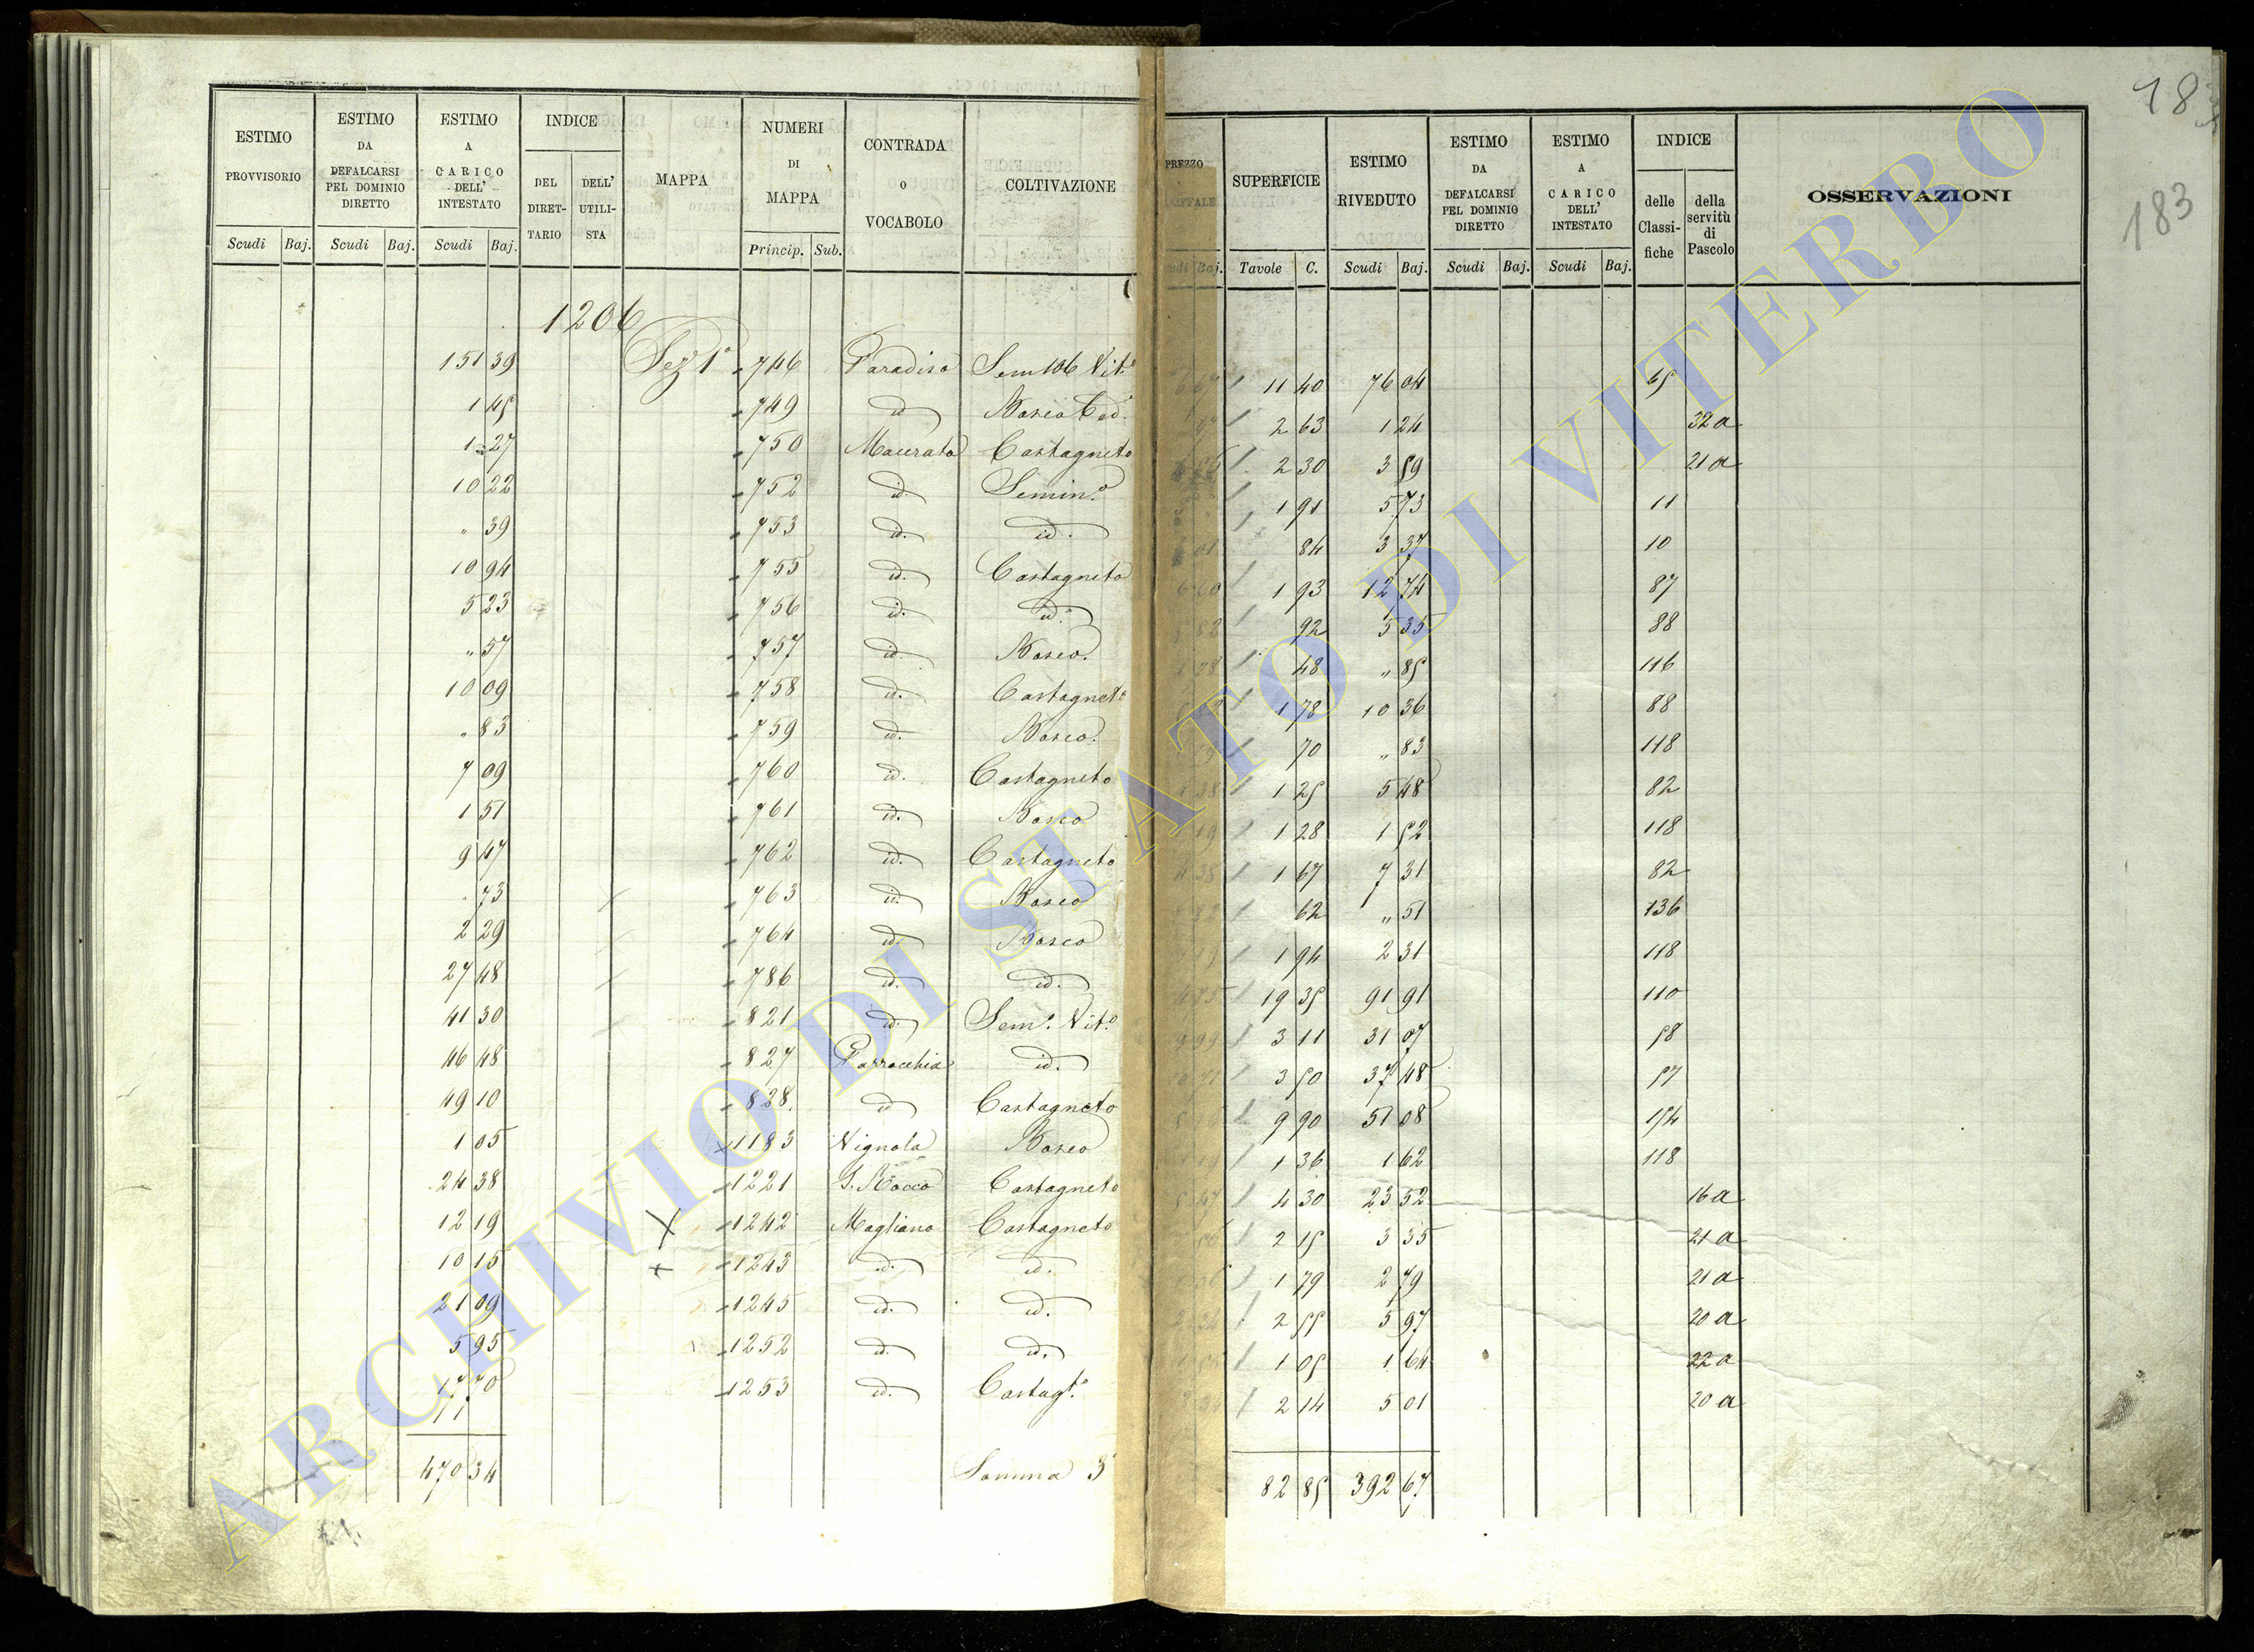 ESTIMO PROVVISORIO ESTIMO DA DEFALCARSI PEL DOMINIO DIRETTO ESTIMO A CARICO DELL' INTESTATO INDICE DEL DIRETTARIO DELL' UTILISTA MAPPA NUMERI DI MAPPA CONTRADA O VOCABOLO COLTIVAZIONE PREZZO SUPERFICIE ESTIMO RIVEDUTO ESTIMO DA DEFALCARSI PEL DOMINIO DIRETTO ESTIMO A CARICO DELL' INTESTATO INDICE delle Classifiche della servitù di Pascolo OSSERVAZIONI
Scudi Baj. Scudi Baj. Scudi Baj. Princip. Sub. Baj. Tavole C. Scudi Baj. Scudi Baj. Scudi Baj.
183
1206
151 39 Sez 1ª 746 Paradiso Sem Vit.º 11 40 76 04 65
1 45 749 id Bosco Ced. 2 63 1 24 32 a
1 27 750 Macerata Castagneto 2 30 3 59 21 a
10 22 752 id. Semin.º 1 91 5 73 11
" 39 753 id. id. 84 3 37 10
10 94 755 id. Castagneto 1 93 12 74 87
5 23 756 id. id. 92 5 35 88
" 57 757 id. Bosco. 48 " 85 116
10 09 758 id. Castagnetº 1 78 10 36 88
" 83 759 id. Bosco. 70 " 83 118
7 09 760 id. Castagneto 1 25 5 48 82
1 51 761 id. Bosco 1 28 1 52 118
9 47 762 id. Castagneto 1 67 7 31 82
" 73 763 id. Bosco 62 " 51 136
2 29 764 id Bosco 1 94 2 31 118
27 48 786 id. id. 19 35 91 91 110
41 30 821 id. Sem.º Vit.º 3 11 31 07 58
46 48 827 Parrocchia id. 3 50 37 48 57
49 10 828 id Castagneto 9 90 51 08 154
1 05 1183 Vignola Bosco 1 36 1 62 118
24 38 1221 S. Rocco Castagneto 4 30 23 52 16 a
12 19 X 1242 Magliano Castagneto 2 15 3 35 21 a
10 15 + 1243 id. id. 1 79 2 79 21 a
21 09 1245 id. id. 2 55 5 97 20 a
5 95 1252 id. id. 1 05 1 64 22 a
17 70 1253 id. Castagt.º 2 14 5 01 20 a
470 34 Somma 82 85 392 67
ARCHIVIO DI STATO DI VITERBO